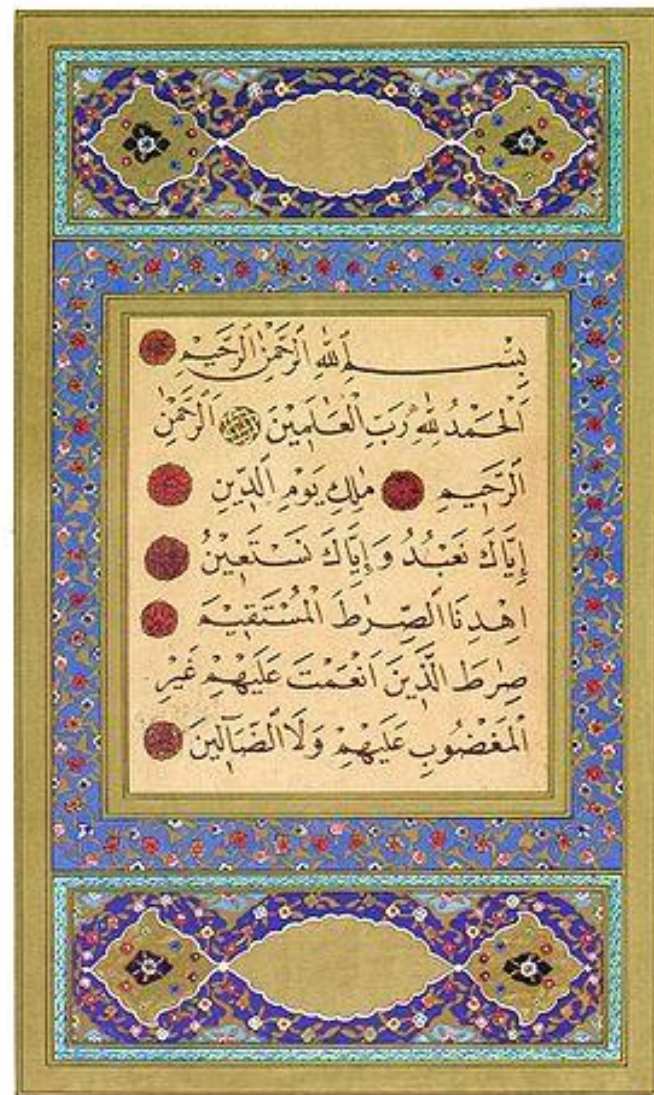 بِسْمِ اللّٰهِ الرَّحْمٰنِ الرَّحِيْمِ
اَلْحَمْدُ لِلّٰهِ رَبِّ الْعَالَمِيْنَ اَلرَّحْمٰنِ
الرَّحِيْمِ مٰلِكِ يَوْمِ الدِّيْنِ
اِيَّاكَ نَعْبُدُ وَ اِيَّاكَ نَسْتَعِيْنُ
اِهْدِنَا الصِّرٰطَ الْمُسْتَقِيْمَ
صِرٰطَ الَّذِيْنَ اَنْعَمْتَ عَلَيْهِمْ غَيْرِ
الْمَغْضُوْبِ عَلَيْهِمْ وَلَا الضَّآلِّيْنَ